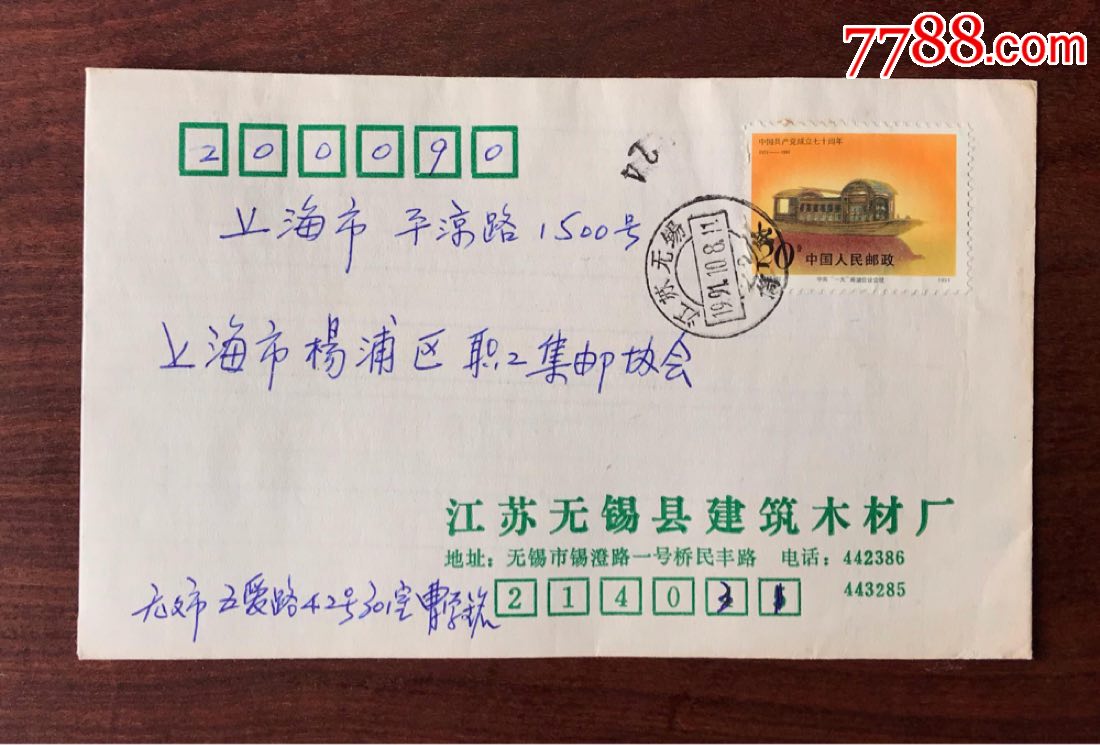 7788.com
200090
24
中国共产党成立七十周年
1921——1991
上海市 平凉路 1500号
江苏无锡
1991.10.8.11
20分 中国人民邮政
中共“一大”南湖会议会址
1991
上海市杨浦区职工集邮协会
江苏无锡县建筑木材厂
地址：无锡市锡澄路一号桥民丰路 电话：442386
443285
五爱路42号301室
214031